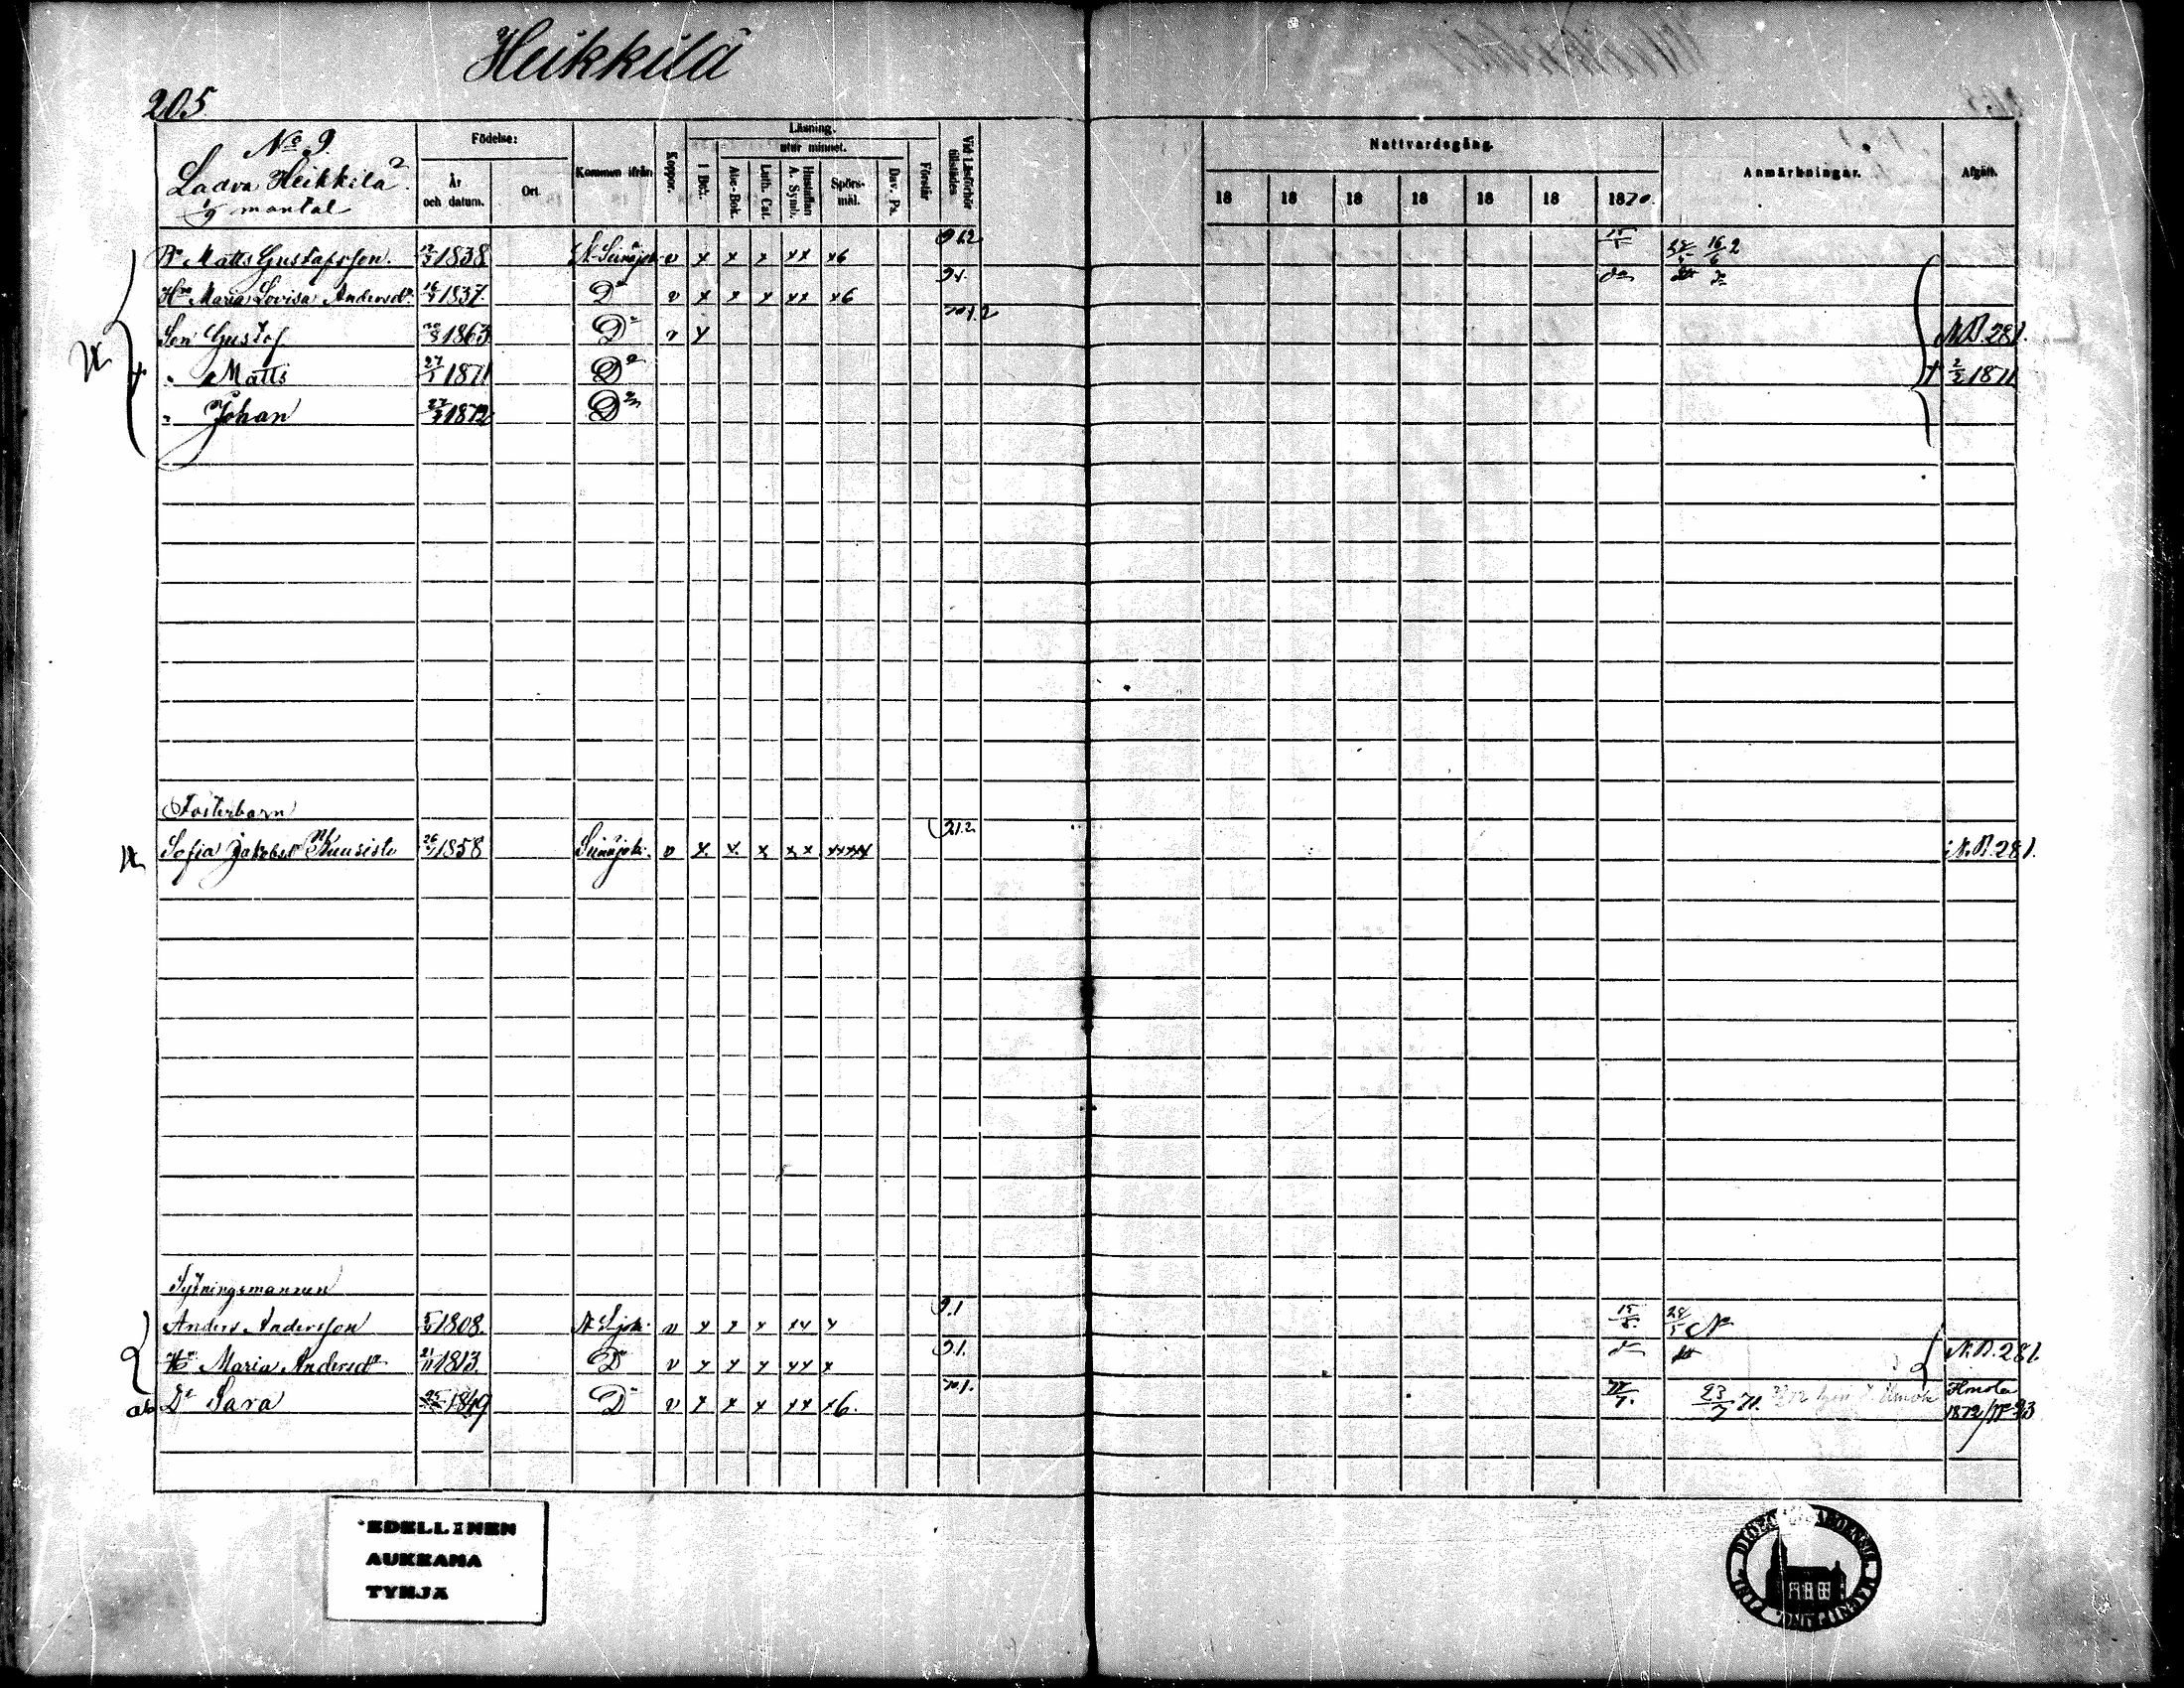 Heikkilä
205
No 9.
Ladva Heikkilä.
1/9 mantal
Födelse:
År och datum.
Ort.
Kommen ifrån
Koppor.
Läsning.
I Bok.
utur minnet.
Abc-Bok.
Luth. Cat.
Hustaflan A. Symb.
Spörsmål.
Dav. Ps.
Förstår
Vid Läsförhör tillstädes
Nattvardsgång.
18 18 18 18 18 18 1870.
Anmärkningar.
Afgått.
Bn Matts Gustafsson. 1838 N. Seinäjok v x x x xx x6
Hu Maria Lovisa Andersdr. 16 1837. Do v x x x xx x6
Son Gustof 1863 Do v x N.B. 281.
" Matts 27/1 1871 Do † 2/2 1871
" Johan 27 1872 Do
Fosterbarn
Sofia Jakobsdr Kuusisto 26 1858 Seinäjok. v x x x xx xxxx 9.1.2 N.B. 281.
Sytningsmannen
Anders Andersson 1808. N. Sjok. v x x x xx x 9.1
Hu Maria Andersdr 21/11 1813. Do v x x x xx x 9.1. N.B. 281.
ab Dr Sara 25 1849 Do v x x x xx x6. 23/7 71. Ilmola 1872/No 23
EDELLINEN
AUKEAMA
TYHJÄ